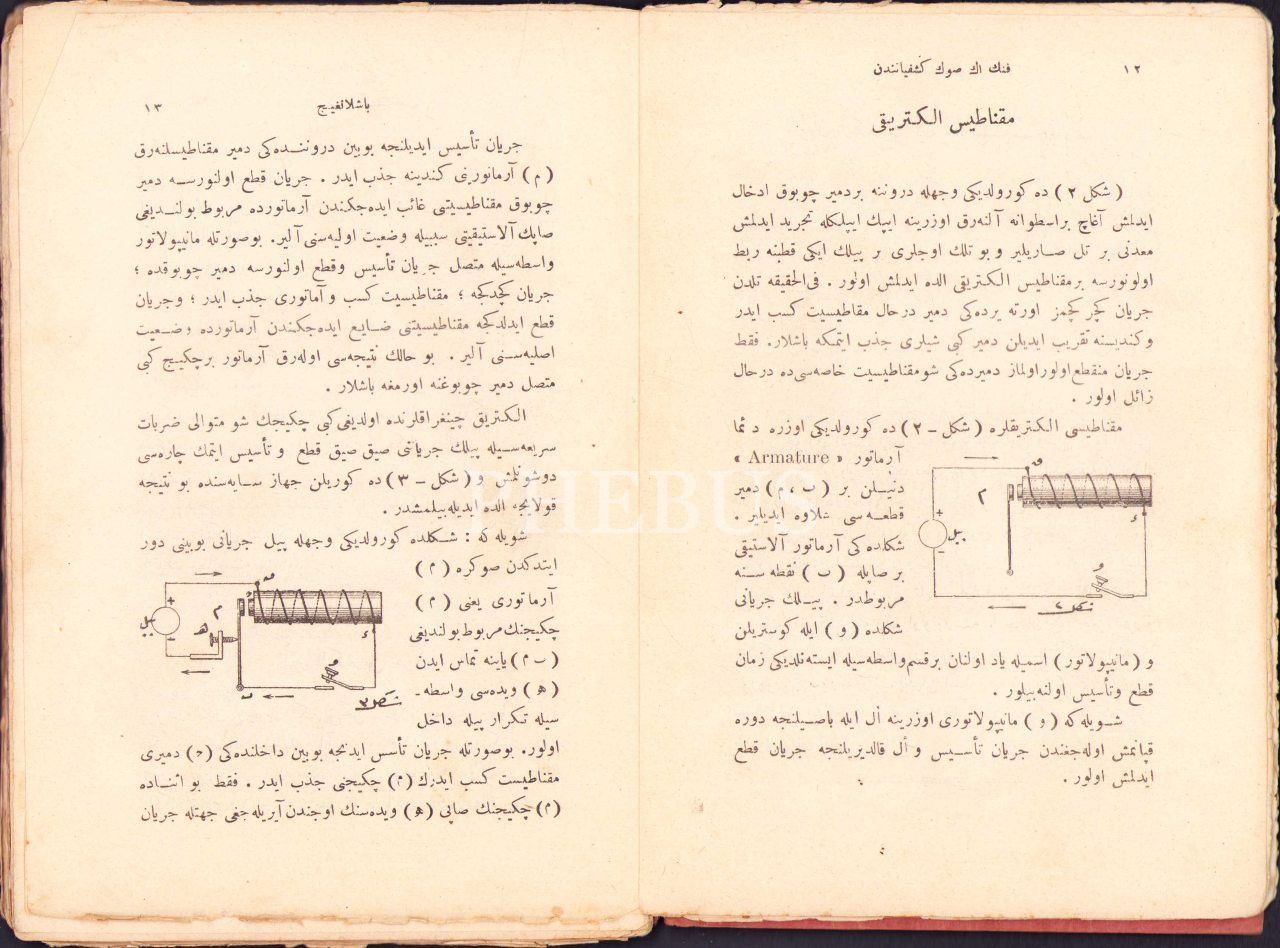 ١٢
فنك اك صوك كشفياتندن
مقناطيس الكتريقى
( شكل ٢ ) ده كورولديكى وجهله دروننه بردمير چوبوق ادخال
ايدلمش آغاچ براسطوانه آلنه‌رق اوزرينه ايپك ايپلكله تجريد ايدلمش
معدنى بر تل صاريلير و بو تلك اوجلرى بر پيلك ايكى قطبنه ربط
اولونورسه برمقناطيس الكتريقى الده ايدلمش اولور . فى‌الحقيقه تلدن
جريان كچر كچمز اورته يرده‌كى دمير درحال مقناطيسيت كسب ايدر
وكنديسنه تقريب ايديلن دمير كبى شيلرى جذب ايتمكه باشلار. فقط
جريان منقطع اولور اولماز دميرده‌كى شو مقناطيسيت خاصه‌سى‌ده درحال
زائل اولور .
مقناطيسى الكتريقلره ( شكل – ٢ ) ده كورولديكى اوزره دائما
آرماتور « Armature »
دنيلن بر ( ب ، م ) دمير
قطعه سى علاوه ايديلير .
شكلده‌كى آرماتور آلاستيقى
بر صاپله ( ب ) نقطه سنه
مربوطدر . پيلك جريانى
شكلده ( و ) ايله كوستريلن
پيل
شكل ٢
و ( مانيپولاتور ) اسميله ياد اولنان برقسم واسطه‌سيله ايسته‌نلديكى زمان
قطع وتأسيس اولنه‌بيلور .
شويله‌كه ( و ) مانيپولاتورى اوزرينه أل ايله باصيلنجه دوره
قپانمش اوله‌جغندن جريان تأسيس و أل قالديريلنجه جريان قطع
ايدلمش اولور .
باشلانغيج
١٣
جريان تأسيس ايديلنجه بوبين دروننده‌كى دمير مقناطيسلنه‌رق
( م ) آرماتورينى كندينه جذب ايدر . جريان قطع اولنورسه دمير
چوبوق مقناطيسيتنى غائب ايده‌جكندن آرماتورده مربوط بولنديغى
صاپك آلاستيقيتى سببيله وضعيت اوليه‌سنى آلير. بوصورتله مانيپولاتور
واسطه‌سيله متصل جريان تأسيس وقطع اولنورسه دمير چوبوقده ؛
جريان كچدكجه ؛ مقناطيسيت كسب و آماتورى جذب ايدر ؛ وجريان
قطع ايدلدكجه مقناطيسيتنى ضايع ايده‌جكندن آرماتورده وضعيت
اصليه‌سنى آلير . بو حالك نتيجه‌سى اوله‌رق آرماتور برچكيج كبى
متصل دمير چوبوغنه اورمغه باشلار .
الكتريق چينغراقلرنده اولديغى كبى چكيجك شو متوالى ضربات
سريعه‌سيله پيلك جرياننى صيق صيق قطع و تأسيس ايتمك چاره‌سى
دوشونلمش و ( شكل – ٣ ) ده كوريلن جهاز سايه‌سنده بو نتيجه
قولايجه الده ايديله‌بيلمشدر .
شويله كه : شكلده كورولديكى وجهله پيل جريانى بوبينى دور
ايتدكدن صوكره ( م )
آرماتورى يعنى ( م )
چكيجنك مربوط بولنديغى
( ب م ) ياينه تماس ايدن
( ه ) ويده‌سى واسطه-
سيله تكرار پيله داخل
پيل
شكل ٣
اولور. بوصورتله جريان تأسس ايدنجه بوبين داخلنده‌كى ( د ) دميرى
مقناطيست كسب ايدرك ( م ) چكيجنى جذب ايدر . فقط بو اثناده
( م ) چكيجنك صاپى ( ه ) ويده‌سنك اوجندن آيريله‌جغى جهتله جريان
PHEBUS